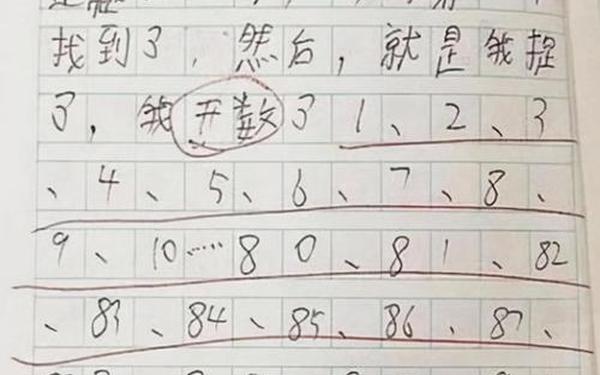 找到了，然后，就是我捉
了，我开数了1、2、3
、4、5、6、7、8、
9、10……80、81、82
、83、84、85、86、87、